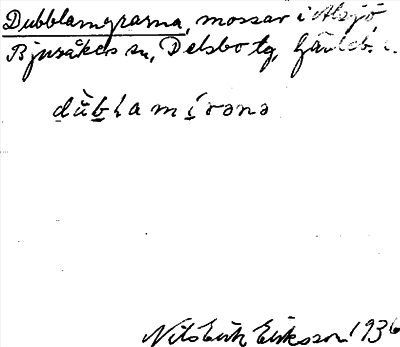 Dubblamyrarna, mossar i Alsjö
Bjuråkers sn, Delsbo tg, Gävleb. l.
dùblamírənə
Nils Erik Eriksson 1936